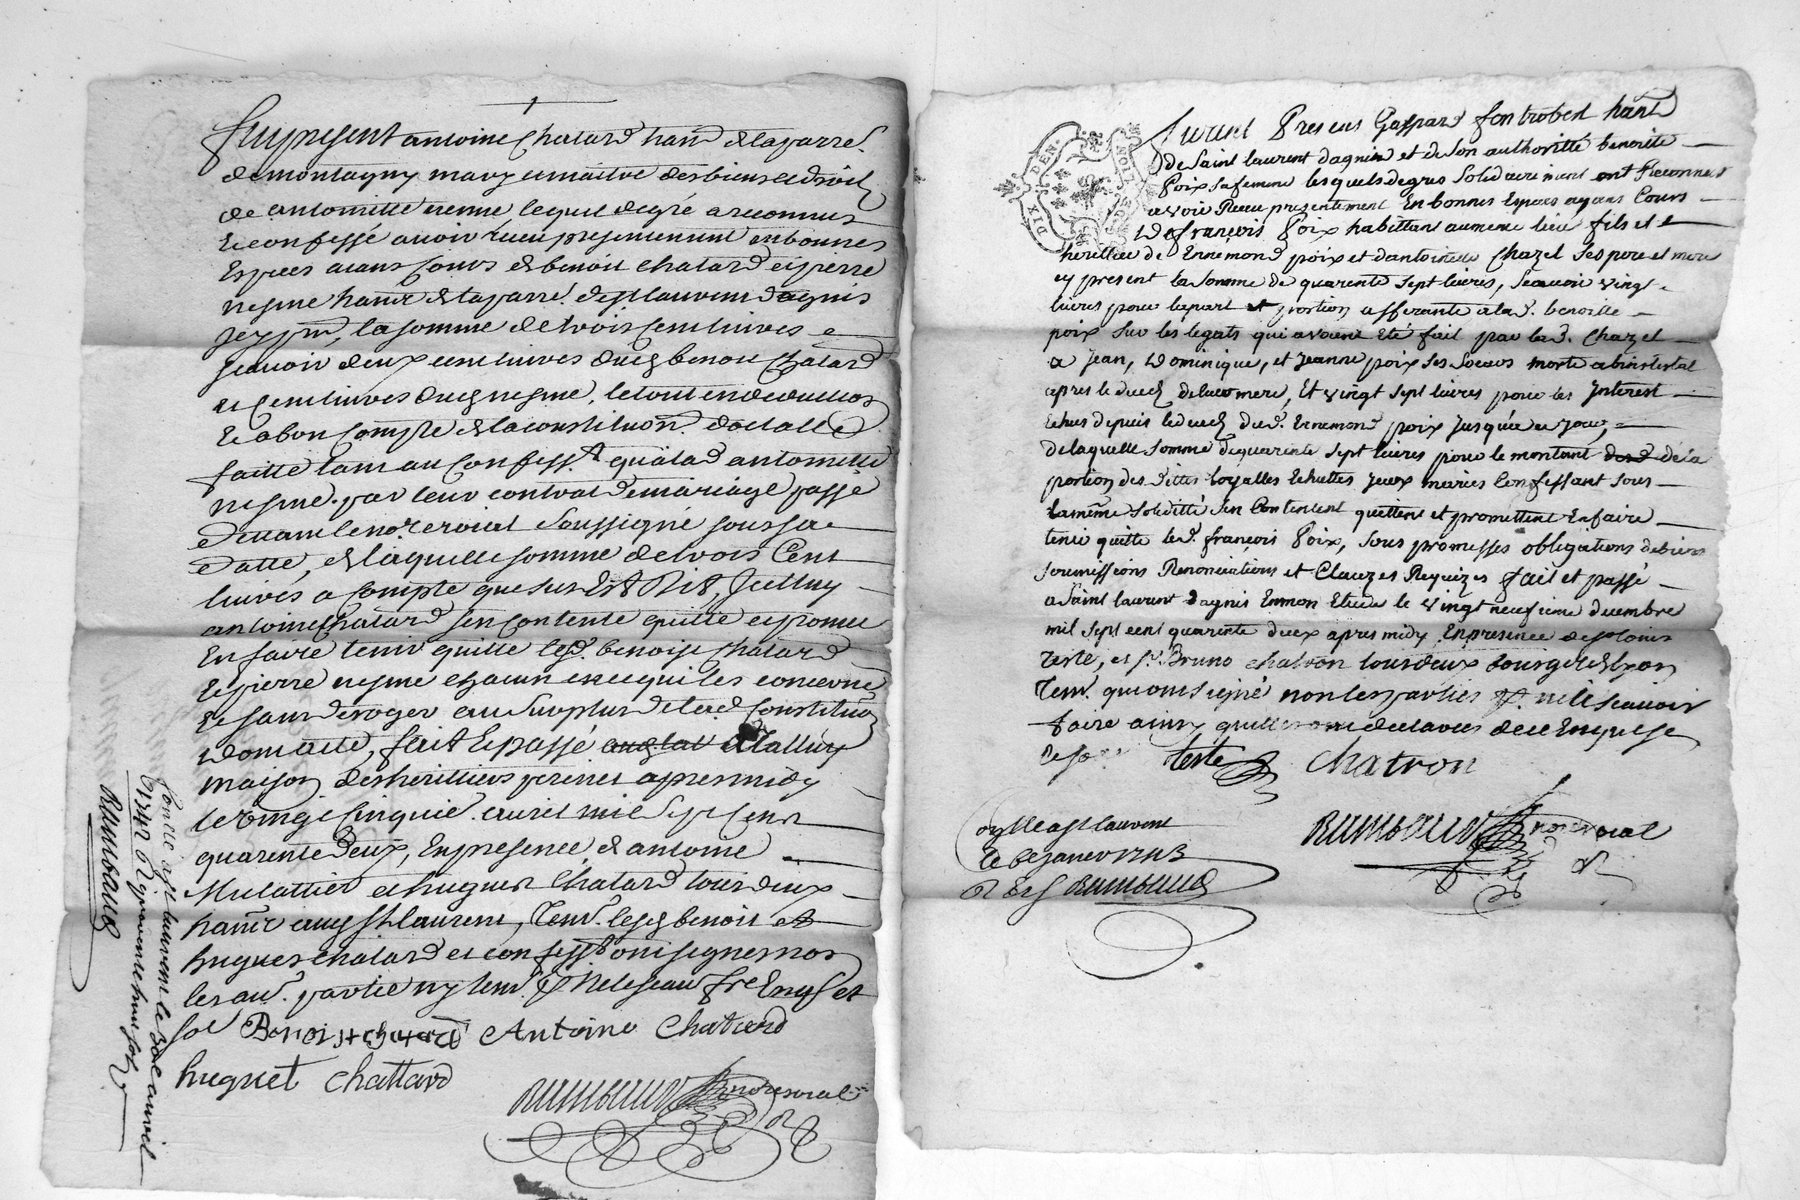 fut present antoine Chatard hant. de la parre.
de montagny mary et maitre des biens et droits
de antoinette nesme lequel de gré a reconnu
et confessé avoir receu presentement en bonnes
Especes aians cours de benoit chatard et pierre
nesme hant. de la parre. de st laurent dagnis
jcy pnt, la somme de trois cent livres
scavoir deux cent livres dud benoit Chatard
et cent livres dud nesme, le tout en deduction
et a bon compte de la constitution dotalle
faitte tant au confesst. qu'a lad antoinette
nesme par leur contrat de mariage passé
devant le nore. roial soussigné sous sa
datte, de laquelle somme de trois Cent
livres a compte que sus Est dit, Jcelluy
antoine Chatard s'en contente quitte et promet
En faire tenir quitte lesd. benoist chatard
et pierre nesme chacun en ce qui les concerne
et sans deroger au surplus de lad constitution
domalle, fait et passé a tallury
maison des heritiers perinet apres midy
le vingt cinquie. avril mil sept cent
quarente deux, En presence de antoine
Mulattier et hugues Chatard tous deux
hant. aud st laurent, tem. lesd benoit et
hugues chatard et confesst. ont signé non
les au. partie ny tem. p ne le scavoir fre Enq. et
so
Benoist chatard Antoine Chatard
huguet Chattard
Rambaud nore roial
Conllé a st laurent le 30e avril
1742 R
Rambaud
DIX DEN.
GN. DE LION
furent Presens Gaspard fontrobert hant.
de Saint laurent dagnin et de son authoritté benoitte
Poix sa femme lesquels de gré solidairement ont Reconneu
avoir Receu presentement En bonnes Especes ayans Cours
de françois Poix habittant au meme lieu fils et
heritier de Ennemond poix et dantoinette Chazel ses pere et mere
cy present la somme de quarente sept livres, Scavoir vingt
livres pour la part et portion afferante a lad. benoitte
poix sur les legats qui avoient Eté fait par lesd. Chazel
a Jean, Dominique, et Jeanne poix ses soeurs morte abintestat
apres le deces de leur mere, Et vingt sept livres pour les Jnterest
Echus depuis le deces dud. Ennemond poix jusques a ce jour,
de laquelle somme de quarente sept livres pour le montant de la
portion des dittes loyalles Echuttes Jceux mariés Confessant sous
la même solidité s'en Contentent quittent et promettent En faire
tenir quitte led. françois Poix, sous promesses obligations de biens
soumissions Renonciations et Clauzes Requizes fait et passé
a Saint laurent dagnis En mon Etude le vingt neufieme decembre
mil sept cent quarente deux apres midy En presence de sr. Louis
teste, et sr. Bruno chatron tous deux bourgeois de Lyon
tem. qui ont signé non les parties p. ne le scavoir
faire ainsy qu'elles ont declarées de ce Enquise
teste Chatron
Rambaud nore roial
Conllé a st laurent
le 6e janer 1743
Rambaud